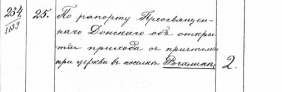 254
1153
25. По рапорту Преосвящен-
наго Донскаго объ откры-
тіи прихода съ причтомъ
при церкви въ поселкѣ Рогаликѣ.
2.